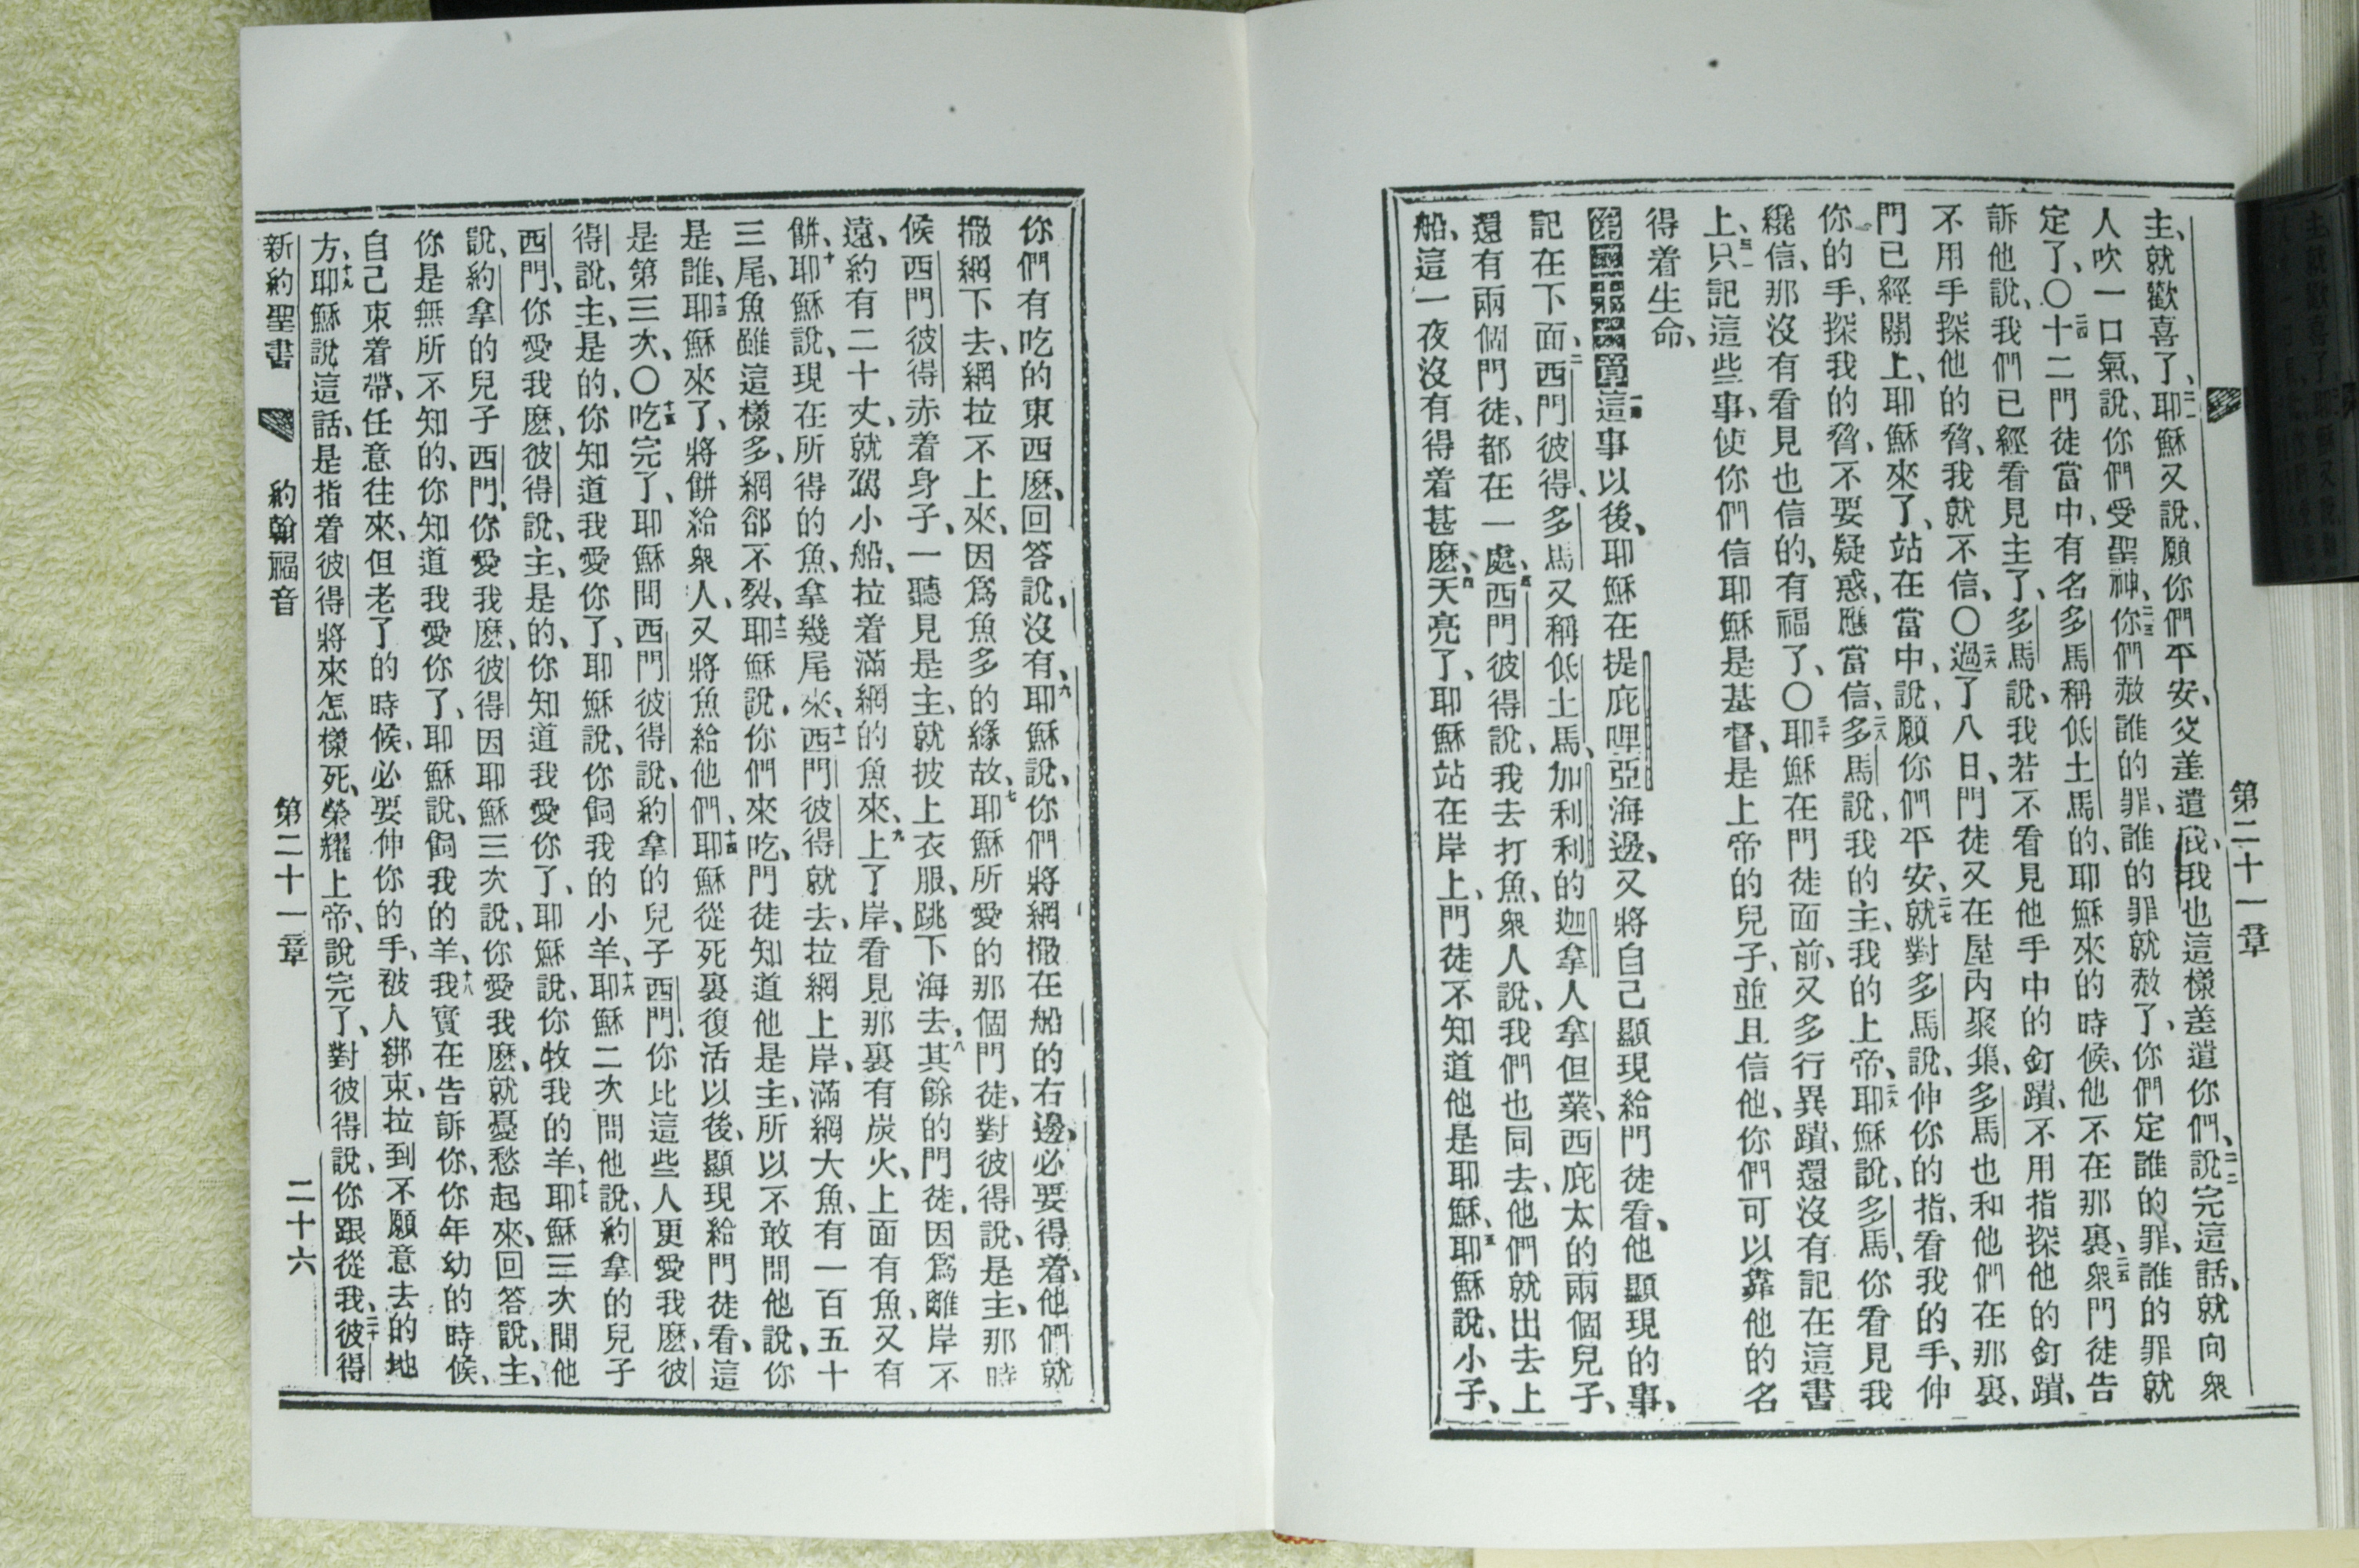 第二十一章
主、就歡喜了、二一耶穌又說、願你們平安、父差遣我、我也這樣差遣你們、二二說完這話、就向衆
人吹一口氣、說、你們受聖神、二三你們赦誰的罪、誰的罪就赦了、你們定誰的罪、誰的罪就
定了、〇二四十二門徒當中、有名多馬稱低土馬的、耶穌來的時候、他不在那裏、二五衆門徒告
訴他說、我們已經看見主了、多馬說、我若不看見他手中的釘蹟、不用指探他的釘蹟、
不用手探他的脅、我就不信、〇二六過了八日、門徒又在屋內聚集、多馬也和他們在那裏、
門已經關上、耶穌來了、站在當中、說、願你們平安、二七就對多馬說、伸你的指、看我的手、伸
你的手、探我的脅、不要疑惑、應當信、二八多馬說、我的主、我的上帝、二九耶穌說、多馬、你看見我
纔信、那沒有看見也信的、有福了、〇三十耶穌在門徒面前、又多行異蹟、還沒有記在這書
上、三一只記這些事、使你們信耶穌是基督、是上帝的兒子、並且信他、你們可以靠他的名
得着生命、
第二十一章一這事以後、耶穌在提庇哩亞海邊、又將自己顯現給門徒看、他顯現的事、
記在下面、二西門彼得、多馬又稱低土馬、加利利的迦拿人拿但業、西庇太的兩個兒子、
還有兩個門徒、都在一處、三西門彼得說、我去打魚、衆人說、我們也同去、他們就出去上
船、這一夜沒有得着甚麽、四天亮了、耶穌站在岸上、門徒不知道他是耶穌、五耶穌說、小子、
你們有吃的東西麽、回答說、沒有、六耶穌說、你們將網撒在船的右邊、必要得着、他們就
撒網下去、網拉不上來、因爲魚多的緣故、七耶穌所愛的那個門徒、對彼得說、是主、那時
候西門彼得赤着身子、一聽見是主、就披上衣服、跳下海去、八其餘的門徒、因爲離岸不
遠、約有二十丈、就駕小船、拉着滿網的魚來、九上了岸、看見那裏有炭火、上面有魚、又有
餅、十耶穌說、現在所得的魚、拿幾尾來、十一西門彼得就去、拉網上岸、滿網大魚、有一百五十
三尾、魚雖這樣多、網郤不裂、十二耶穌說、你們來吃、門徒知道他是主、所以不敢問他說、你
是誰、十三耶穌來了、將餅給衆人、又將魚給他們、十四耶穌從死裏復活以後、顯現給門徒看、這
是第三次、〇十五吃完了、耶穌問西門彼得說、約拿的兒子西門、你比這些人更愛我麽、彼
得說、主、是的、你知道我愛你了、耶穌說、你飼我的小羊、十六耶穌二次問他說、約拿的兒子
西門、你愛我麽、彼得說、主、是的、你知道我愛你了、耶穌說、你牧我的羊、十七耶穌三次問他
說、約拿的兒子西門、你愛我麽、彼得因耶穌三次說、你愛我麽、就憂愁起來、回答說、主、
你是無所不知的、你知道我愛你了、耶穌說、飼我的羊、十八我實在告訴你、你年幼的時候、
自己束着帶、任意往來、但老了的時候、必要伸你的手、被人綁束、拉到不願意去的地
方、十九耶穌說這話、是指着彼得將來怎樣死、榮耀上帝、說完了、對彼得說、你跟從我、二十彼得
新約聖書 約翰福音 第二十一章 二十六